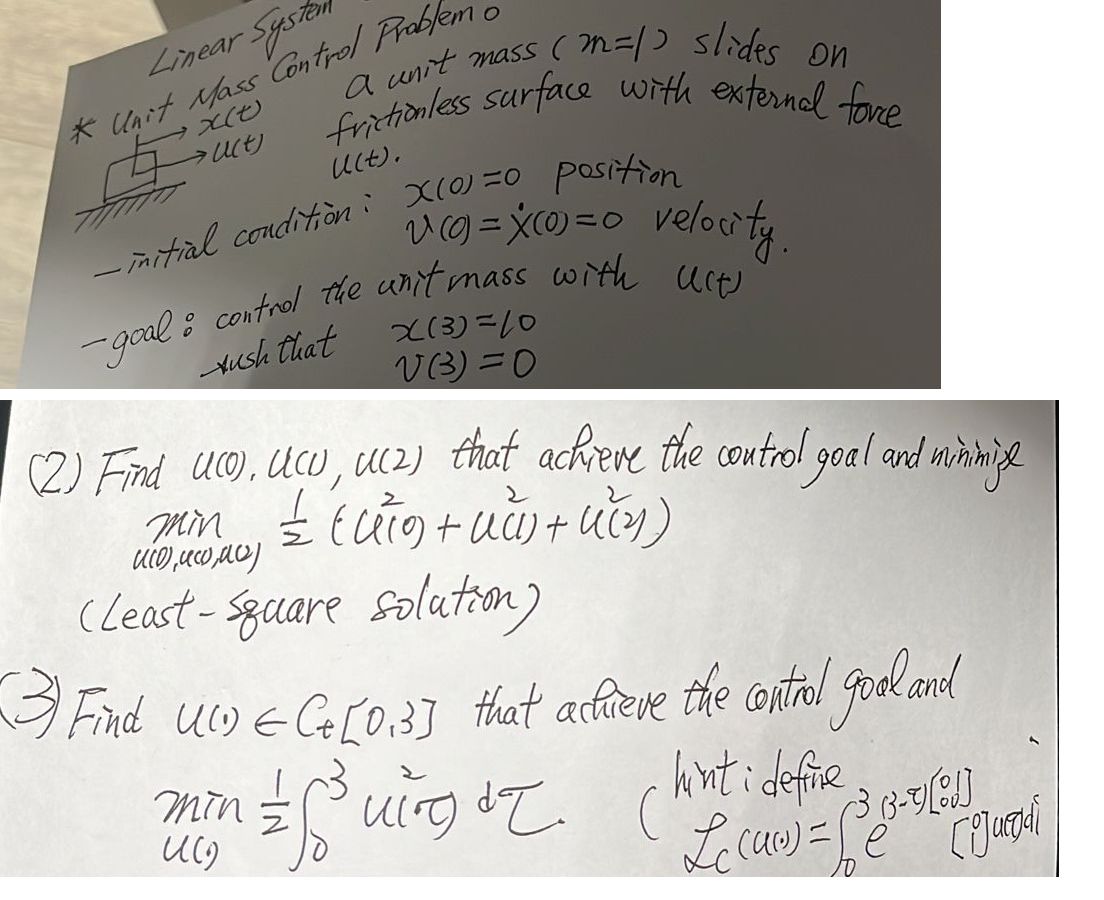 Linear System
* Unit Mass Control Problem o
a unit mass (m=1) slides on
frictionless surface with external force
u(t).
x(t)
u(t)
- initial condition : x(0)=0 position
v(0) = ẋ(0)=0 velocity.
- goal : control the unit mass with u(t)
sush that x(3)=10
v(3)=0
(2) Find u(0), u(1), u(2) that achieve the control goal and minimize
min 1/2 (u²(0) + u²(1) + u²(2))
u(0),u(1),u(2)
(Least-square solution)
(3) Find u(·) ∈ Ct[0,3] that achieve the control goal and
min 1/2 ∫₀³ u²(τ) dτ.
u(·)
( hint : define
ℒc(u(·)) = ∫₀³ e^{(3-τ)[0 1; 0 0]} [0; 1] u(τ)d